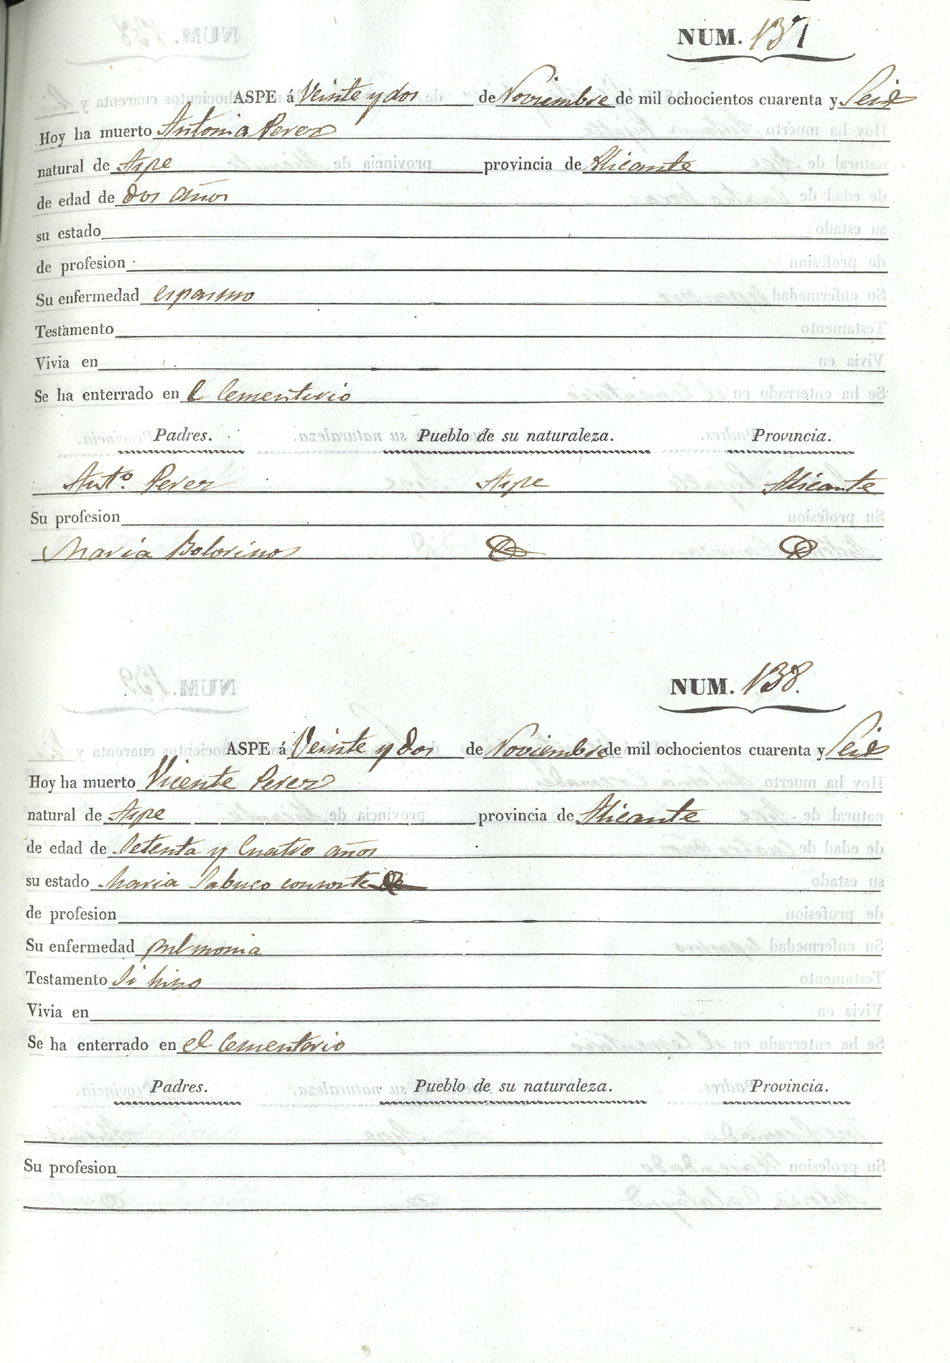 NUM. 137
ASPE á Veinte y dos de Noviembre de mil ochocientos cuarenta y Seis
Hoy ha muerto Antonia Perez
natural de Aspe provincia de Alicante
de edad de dos años
su estado
de profesion
Su enfermedad espasmo
Testamento
Vivia en
Se ha enterrado en el Cementerio
Padres. Pueblo de su naturaleza. Provincia.
Antº. Perez Aspe Alicante
Su profesion
Maria Bolorinos
NUM. 138.
ASPE á Veinte y dos de Noviembre de mil ochocientos cuarenta y Seis
Hoy ha muerto Vicente Perez
natural de Aspe provincia de Alicante
de edad de Setenta y Cuatro años
su estado Maria Sabuco consorte
de profesion
Su enfermedad pulmonia
Testamento Si hizo
Vivia en
Se ha enterrado en el Cementerio
Padres. Pueblo de su naturaleza. Provincia.
Su profesion